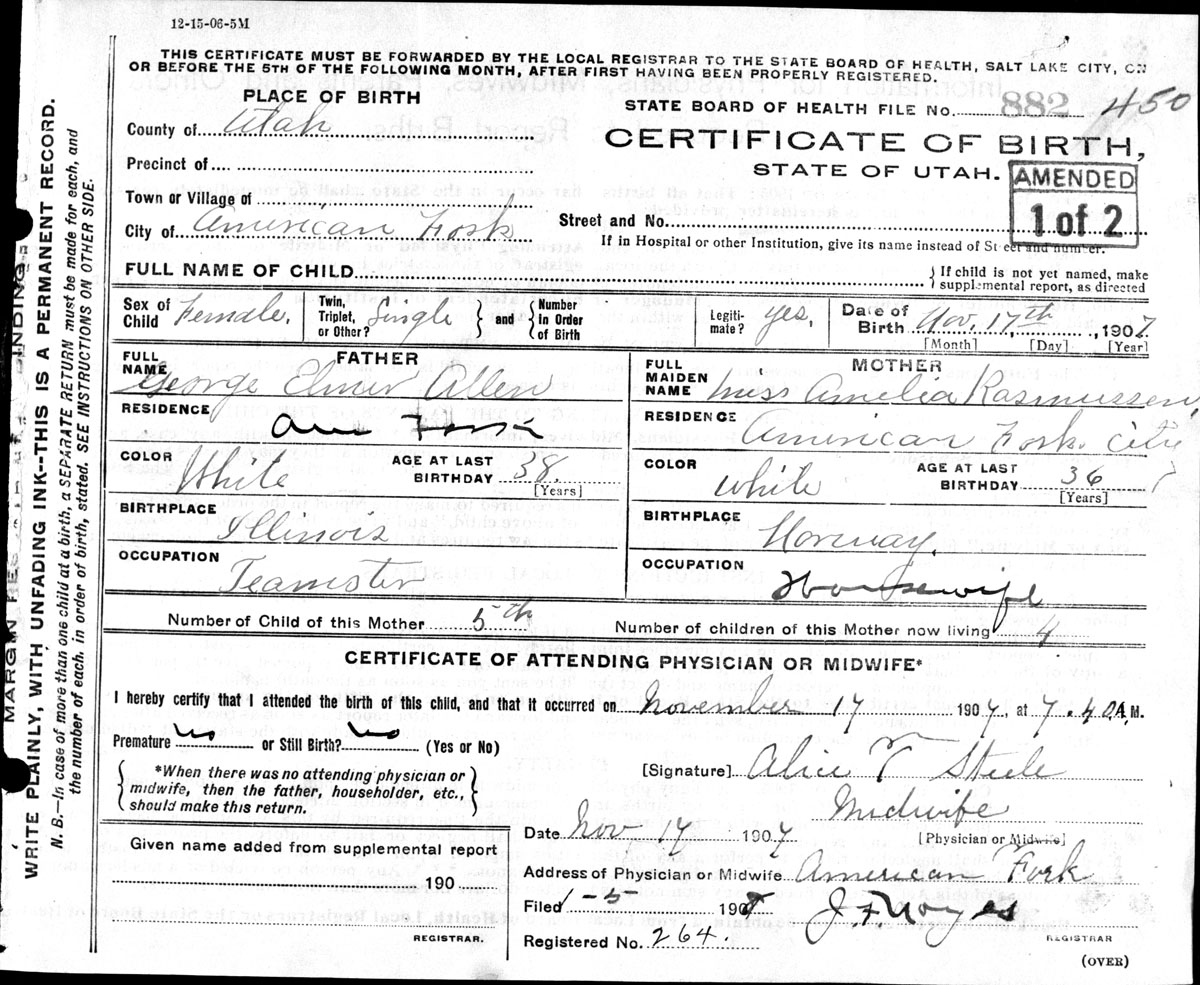 12-15-06-5M
THIS CERTIFICATE MUST BE FORWARDED BY THE LOCAL REGISTRAR TO THE STATE BOARD OF HEALTH, SALT LAKE CITY, ON
OR BEFORE THE 5TH OF THE FOLLOWING MONTH, AFTER FIRST HAVING BEEN PROPERLY REGISTERED.
PLACE OF BIRTH
STATE BOARD OF HEALTH FILE No. 882 450
County of Utah
CERTIFICATE OF BIRTH,
Precinct of
STATE OF UTAH.
AMENDED
1 of 2
Town or Village of
City of American Fork
Street and No.
If in Hospital or other Institution, give its name instead of Street and number.
FULL NAME OF CHILD
If child is not yet named, make
supplemental report, as directed
Sex of Child Female. Twin, Triplet, or Other? Single and Number In Order of Birth Legiti-mate? yes. Date of Birth Nov. 17th, 1907
[Month] [Day] [Year]
FATHER
FULL NAME George Elmer Allen
RESIDENCE Am Fork
COLOR White AGE AT LAST BIRTHDAY 38. [Years]
BIRTHPLACE Illinois
OCCUPATION Teamster
MOTHER
FULL MAIDEN NAME Miss Amelia Rasmussen
RESIDENCE American Fork City
COLOR White AGE AT LAST BIRTHDAY 36 [Years]
BIRTHPLACE Norway.
OCCUPATION Housewife
Number of Child of this Mother 5th Number of children of this Mother now living 4
CERTIFICATE OF ATTENDING PHYSICIAN OR MIDWIFE*
I hereby certify that I attended the birth of this child, and that it occurred on November 17 1907, at 7.40 A.M.
Premature No or Still Birth? No (Yes or No)
*When there was no attending physician or
midwife, then the father, householder, etc.,
should make this return.
[Signature] Alice Steele
Midwife
[Physician or Midwife]
Date Nov 17 1907
Address of Physician or Midwife American Fork
Filed 1-5 190
Registered No. 264.
J F Noyes
REGISTRAR
(OVER)
Given name added from supplemental report
190
REGISTRAR.
WRITE PLAINLY, WITH UNFADING INK---THIS IS A PERMANENT RECORD.
N. B.—In case of more than one child at a birth, a SEPARATE RETURN must be made for each, and
the number of each, in order of birth, stated. SEE INSTRUCTIONS ON OTHER SIDE.